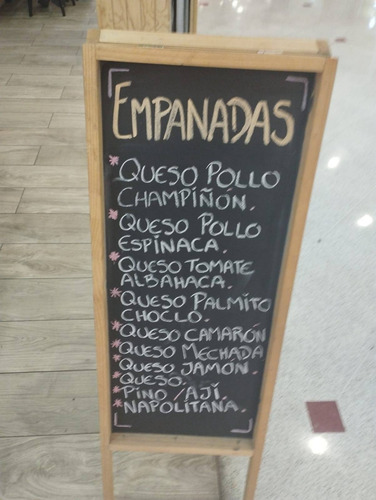 EMPANADAS
* QUESO POLLO
CHAMPIÑÓN.
* QUESO POLLO
ESPINACA.
* QUESO TOMATE
ALBAHACA.
* QUESO PALMITO
CHOCLO.
* QUESO CAMARÓN
* QUESO MECHADA
* QUESO JAMÓN.
* QUESO.
* PINO / AJÍ.
* NAPOLITANA.